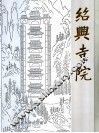 紹興寺院